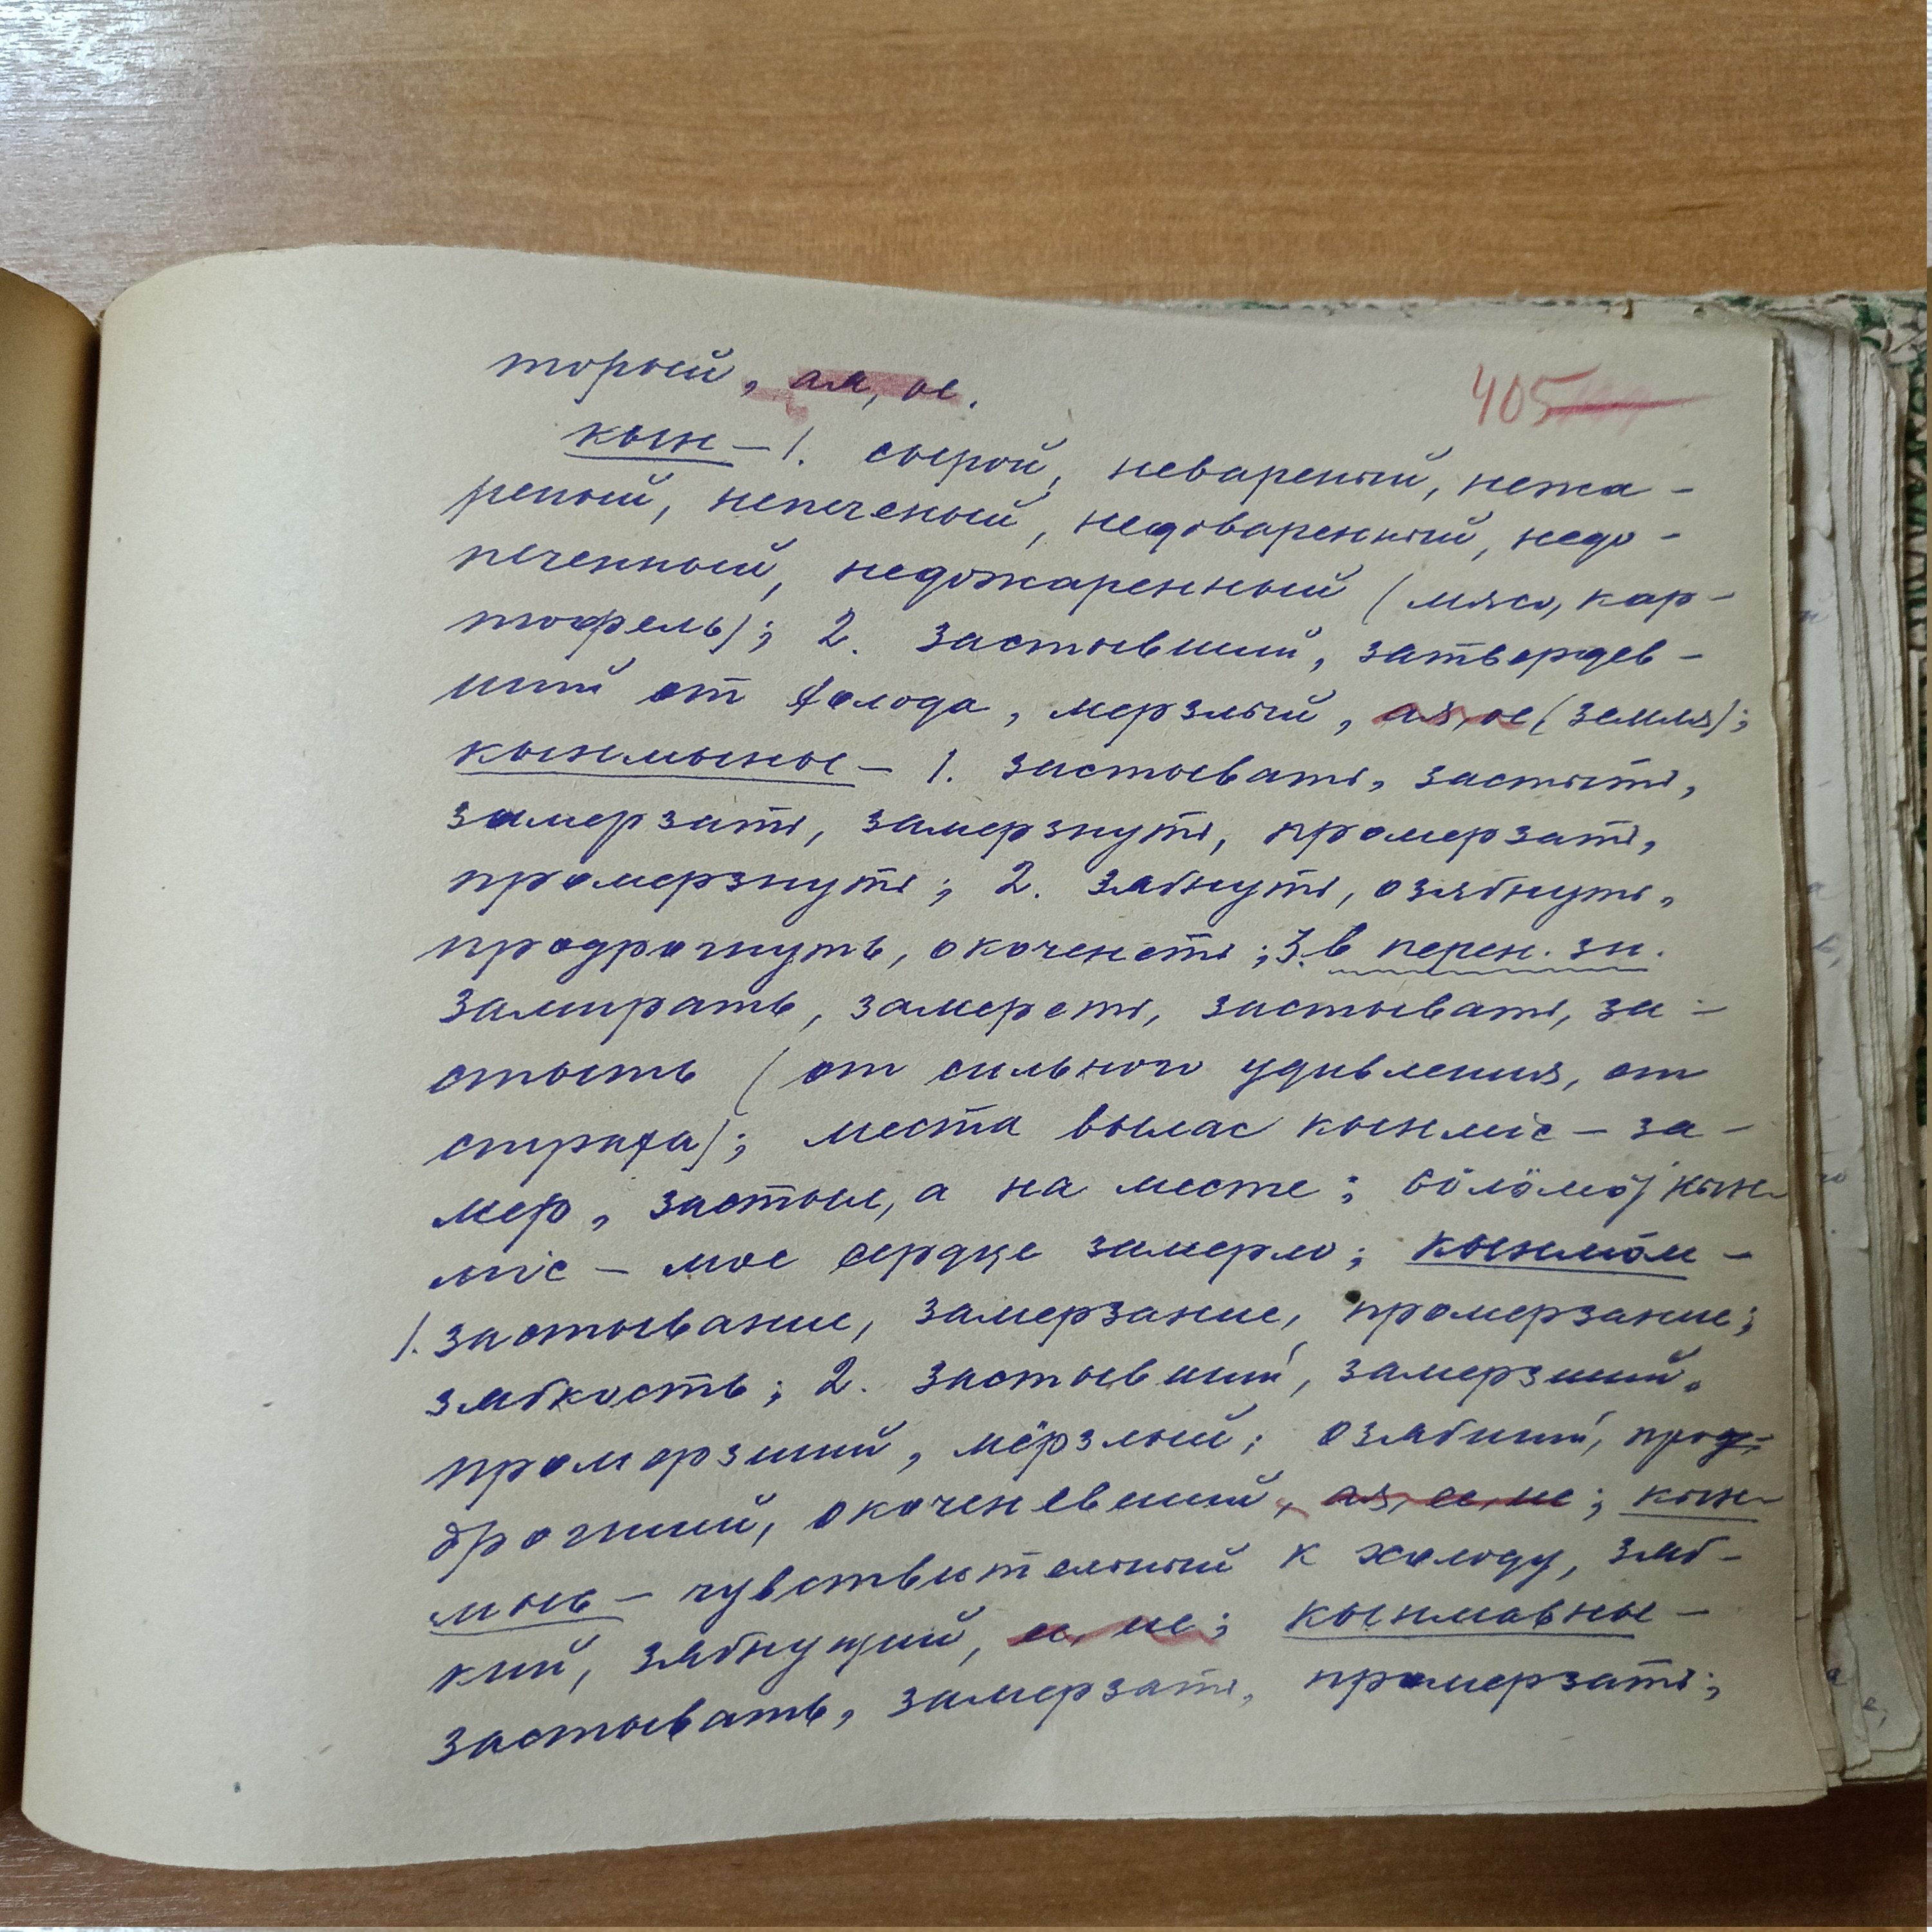 торый, ая, ое.
405
кын – 1. сырой, невареный, нежа-
реный, непеченый, недоваренный, недо-
печенный, недожаренный (мясо, кар-
тофель); 2. застывший, затвердев-
ший от холода, мерзлый, ая, ое (земля);
кынмыны – 1. застывать, застыть,
замерзать, замерзнуть, промерзать,
промерзнуть; 2. зябнуть, озябнуть,
продрогнуть, окоченеть; 3. в перен. зн.
замирать, замереть, застывать, за-
стыть (от сильного удивления, от
страха); места вылас кынміс – за-
мер, застыл, а на месте; сӧлӧмӧј кын-
міс – мое сердце замерло; кынмӧм –
1. застывание, замерзание, промерзание;
зябкость; 2. застывший, замерзший,
промерзший, мёрзлый; озябший, прод-
дрогший, окоченевший, ая, ее, ие; кын-
мысь – чувствительный к холоду, зяб-
кий, зябнущий, ее, ие; кынмавны –
застывать, замерзать, промерзать;